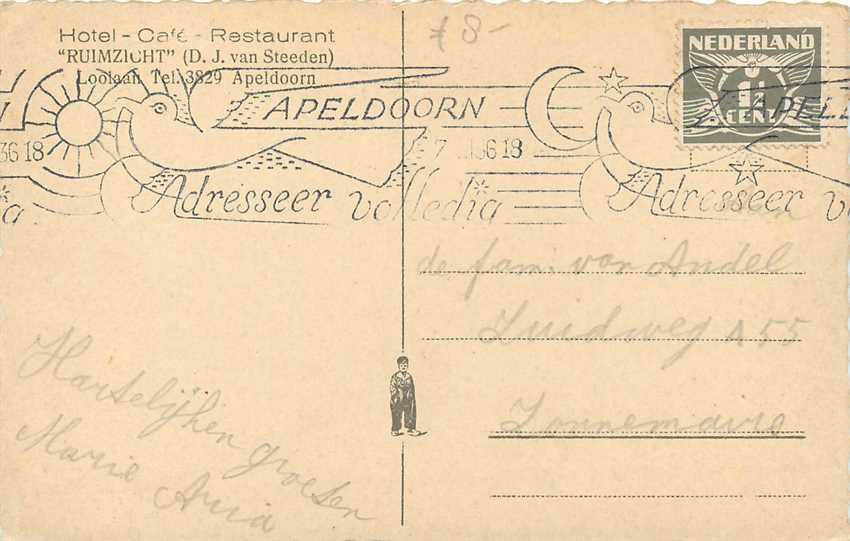 Hotel - Café - Restaurant
"RUIMZICHT" (D. J. van Steeden)
Loolaan Tel. 3829 Apeldoorn
8-
NEDERLAND
1½
CENT
APELDOORN
APELD
36 18
7 36 18
Adresseer volledig
Adresseer v
de fam. van Andel
Zuidweg A 55
Zonnemaire
Hartelijken groeten
Marie